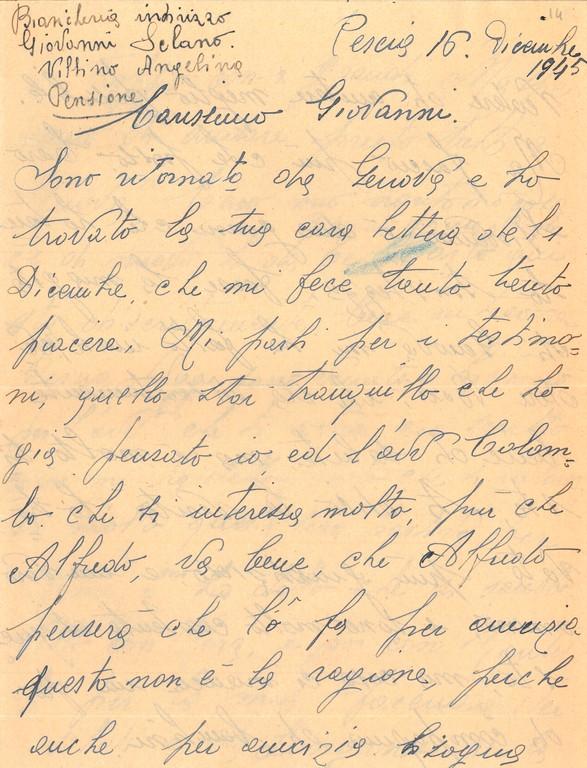 14
Biancheria indirizzo
Giovanni Selano.
Villino Angelina
Pensione
Pescia 16. Dicembre
1945
Carissimo Giovanni.
Sono ritornato da Genova e ho
trovato la tua cara lettera dell 1
Dicembre, che mi fece tanto tanto
piacere, Mi parli per i testimo=
ni, quello stai tranquillo che ho
già pensato io, ed l'avv Colom=
bo. che si interessa molto, più che
Alfredo, va bene, che Alfredo
penserà che lô fa per amicizia
questo non è la ragione, perche
anche per amicizia bisogna